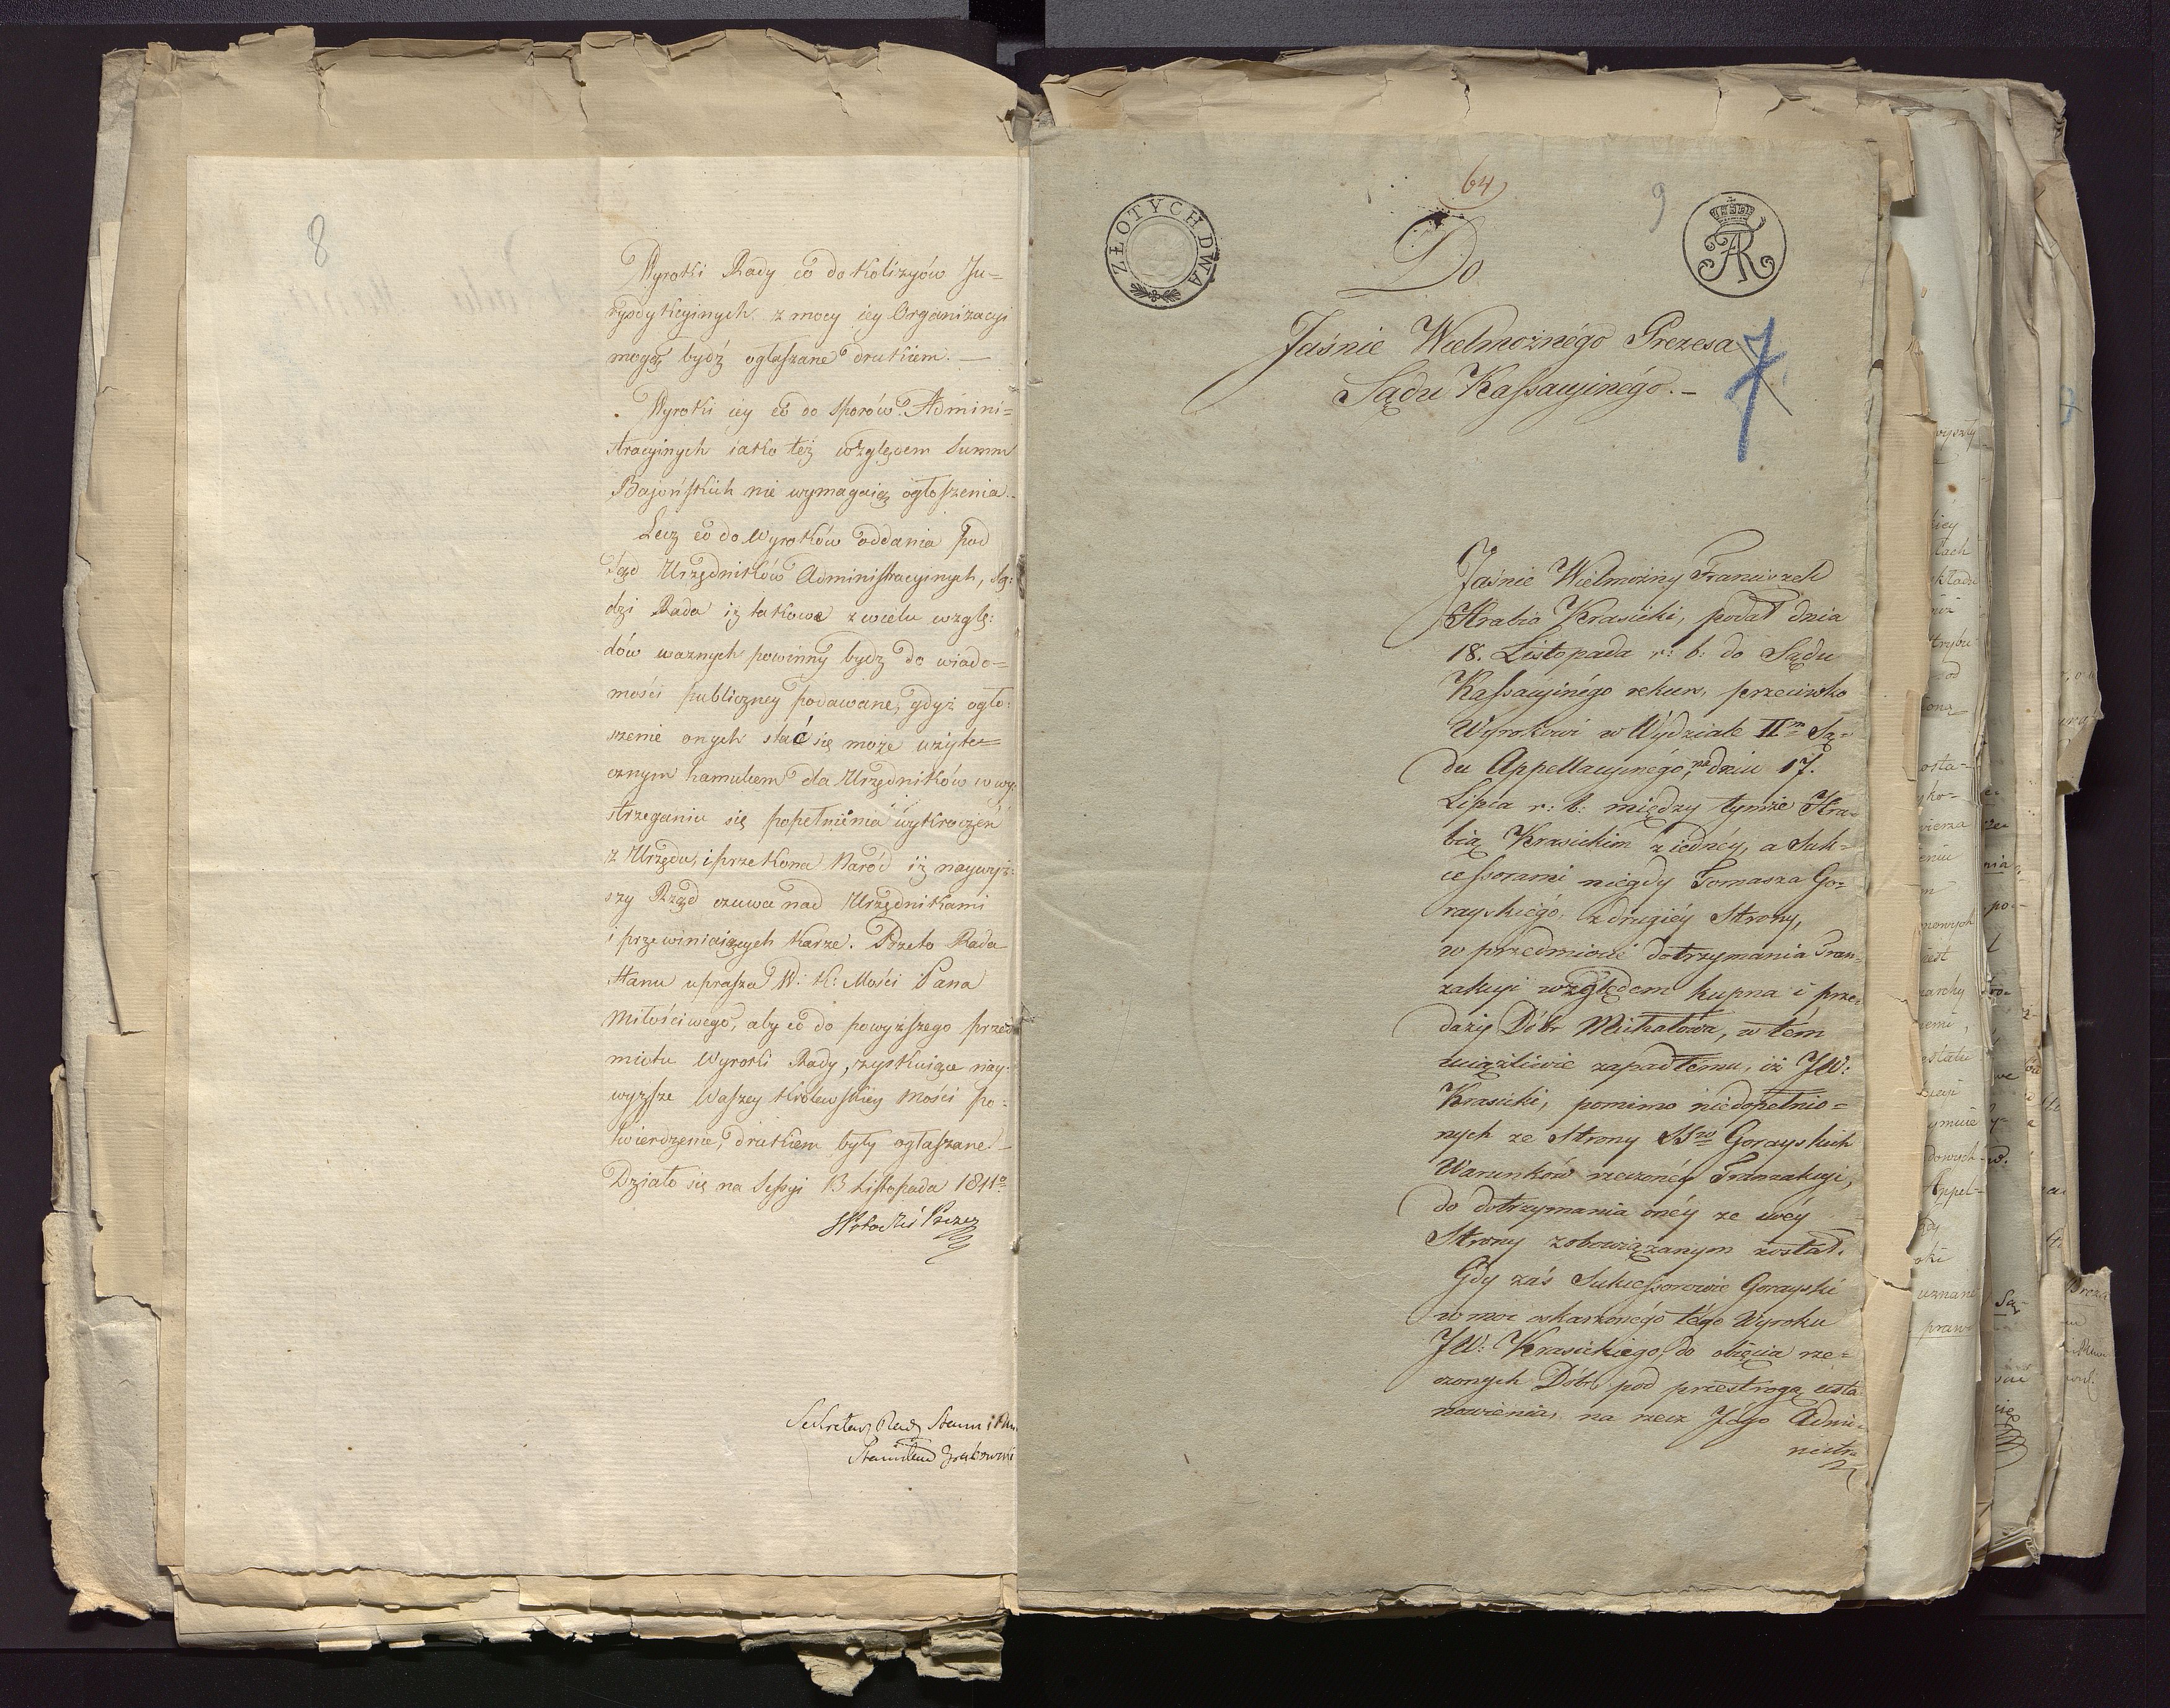 8
Wyroki Rady co do Kolizyów Ju=
rysdykcyinych z mocy iey Organizacyi
mogą bydź ogłaszane drukiem. —
Wyroki iey co do sporów Admini=
stracyinych iako też względem Summ
Bajońskich nie wymagaią ogłoszenia.
Lecz co do Wyroków oddania pod
Sąd Urzędników Administracyinych, Są:
dzi Rada iż takowe z wielu wzglę:
dów ważnych powinny bydz do wiado=
mości publiczney podawane, gdyż ogło:
szenie onych stać się może użyte=
cznym hamulcem dla Urzędników w wy:
strzeganiu się popełnienia wykroczeń
z Urzędu, i przekona Naród iż naywyż:
szy Rząd czuwa nad Urzędnikami
i przewiniaiących karze. Przeto Rada
Stanu uprasza W: K: Mości Pana
Miłościwego, aby co do powyższego przed
miotu Wyroki Rady, zyskuiące nay:
wyższe Waszey Królewskiey Mości po:
twierdzenie, drukiem były ogłaszane —
Działo się na Sessyi 13 Listopada 1811º
Potocki Prezes
Sekretarz Rady Stanu i
Stanisław Grabowski
64
9
ZŁOTYCH DWA
Do
Jaśnie Wielmożnégo Prezesa
Sądu Kassacyinégo. –
7
Jaśnie Wielmożny Franciszek
Hrabia Krasicki, podał dnia
18. Listopada r: b: do Sądu
Kassacyinégo rekurs, przeciwko
Wyrokowi w Wydziale IIm Są=
du Appellacyinégo, na dniu 17.
Lipca r: b: między tymże Hra=
bią Krasickim z iednéy, a Suk=
cessorami niegdy Tomasza Go=
rayskiégo, z drugiéy Strony,
w przedmiocie dotrzymania Tran=
zakcyi względem kupna i prze=
daży Dóbr Michałowa, w tém
uciążliwie zapadłému, iż JW:
Krasicki, pomimo niedopełnio=
nych ze Strony SSrów Gorayskich
Warunków rzeczonéy Tranzakcyi,
do dotrzymania onéy ze swéy
Strony zobowiązanym został.
Gdy zaś Sukcessorowie Gorayski
w moc zskarżonégo tégo Wyroku
JW: Krasickiego, do obięcia rze=
czonych Dóbr, pod przestrogą usta
nowienia, na rzecz Jégo Admi=
nistra